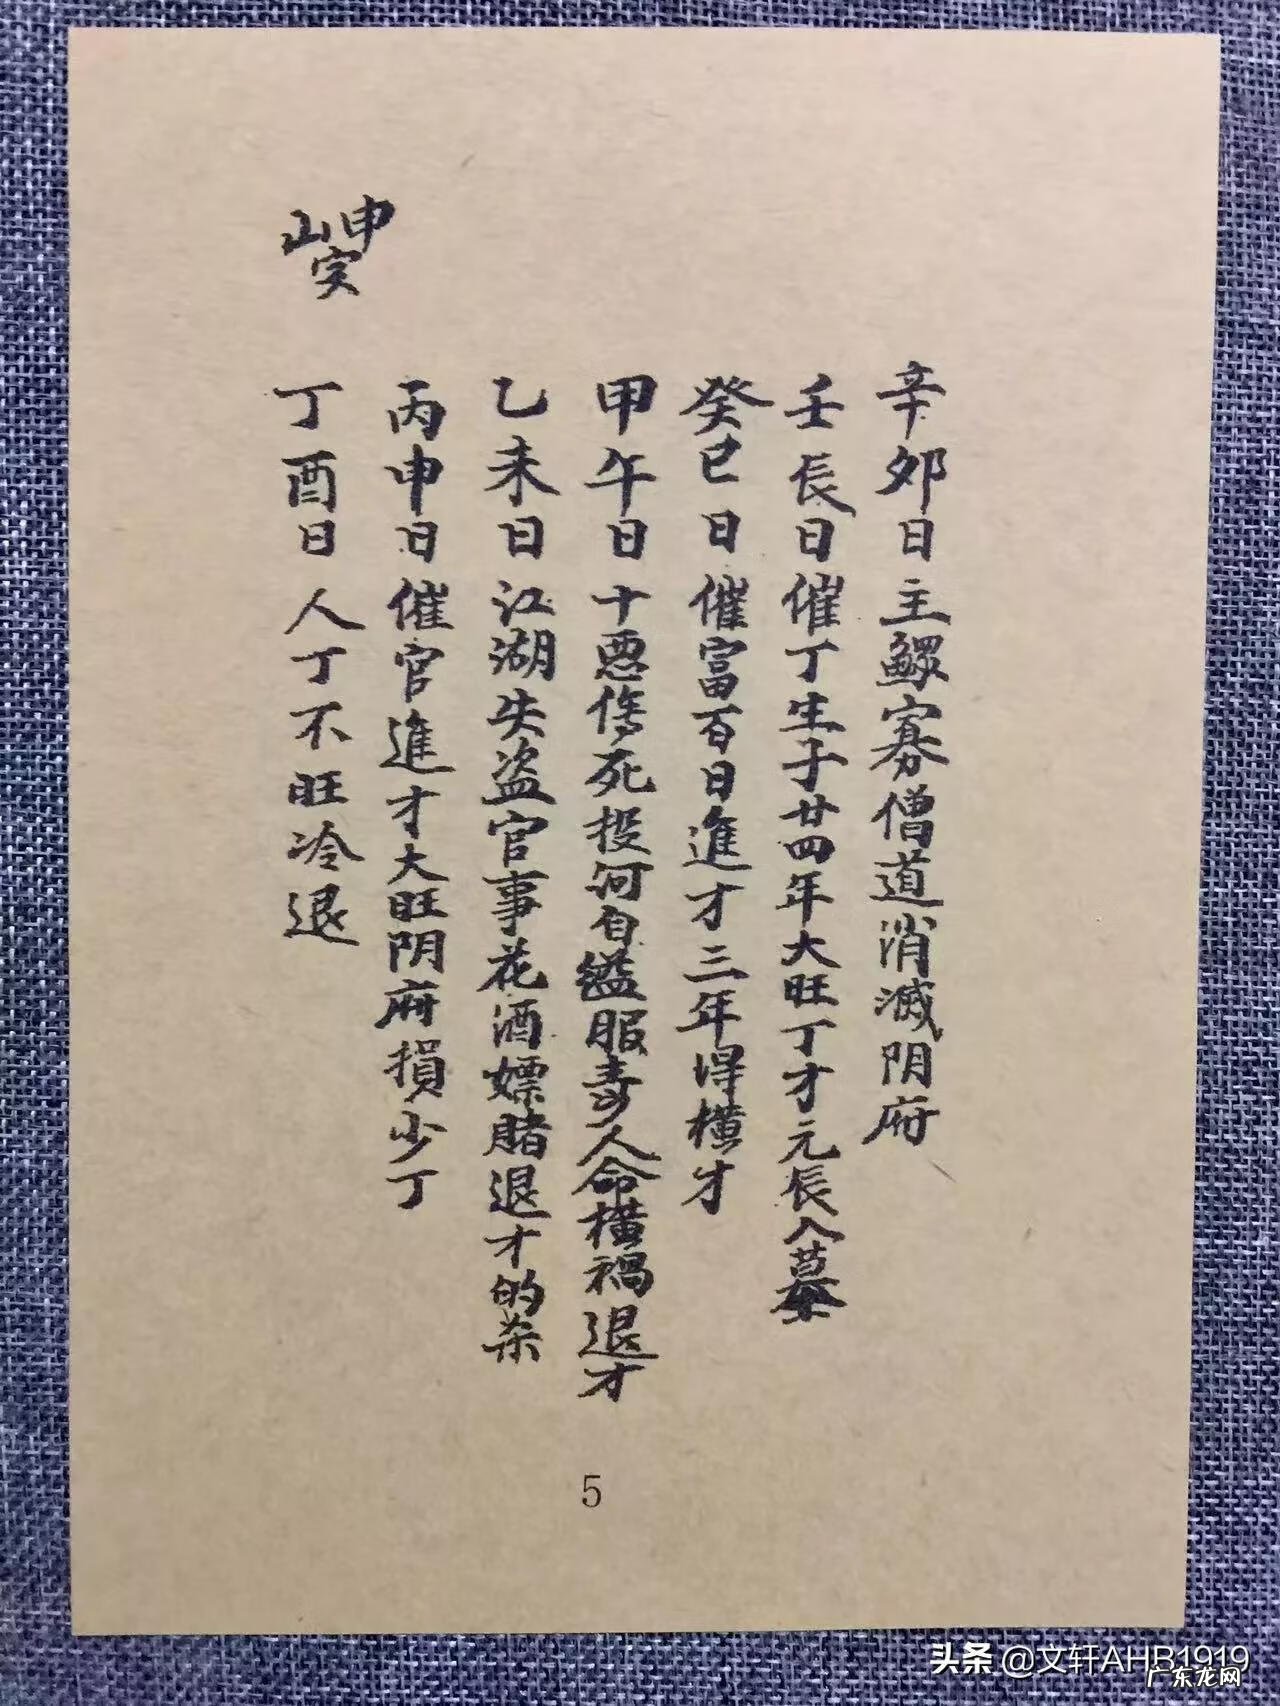 辛卯日主鰥寡僧道消滅阴府
壬辰日催丁生子廿四年大旺丁才元辰入墓
癸巳日催富百日進才三年得橫才
甲午日十悪傷死投河自縊服毒人命橫禍退才
乙未日江湖失盗官事花酒嫖赌退才的杀
丙申日催官進才大旺阴府損少丁
丁酉日人丁不旺冷退
申山寅
5
头条@文轩AHB1919
广东龙网